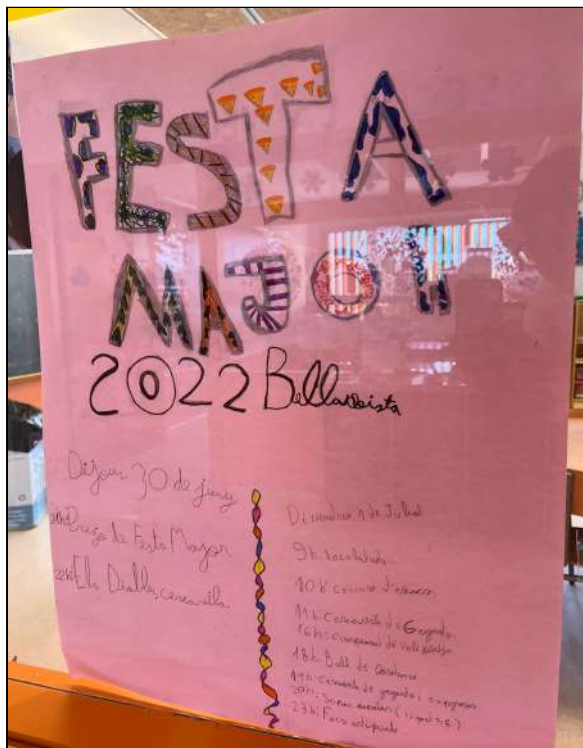 FESTA
MAJOR
2022 Bellavista
Dijous 30 de juny
21h Pregó de Festa Major
22h Els Diables cercavila.
Divendres 1 de Juliol
9h xocolatada.
10h concurs d'
11h: Cercavila de Gegants.
16h: campionat de volei platja
18h: Ball de Sardanes
19h: Cercavila de gegants i
20h: Sopar
23h: Focs artificials